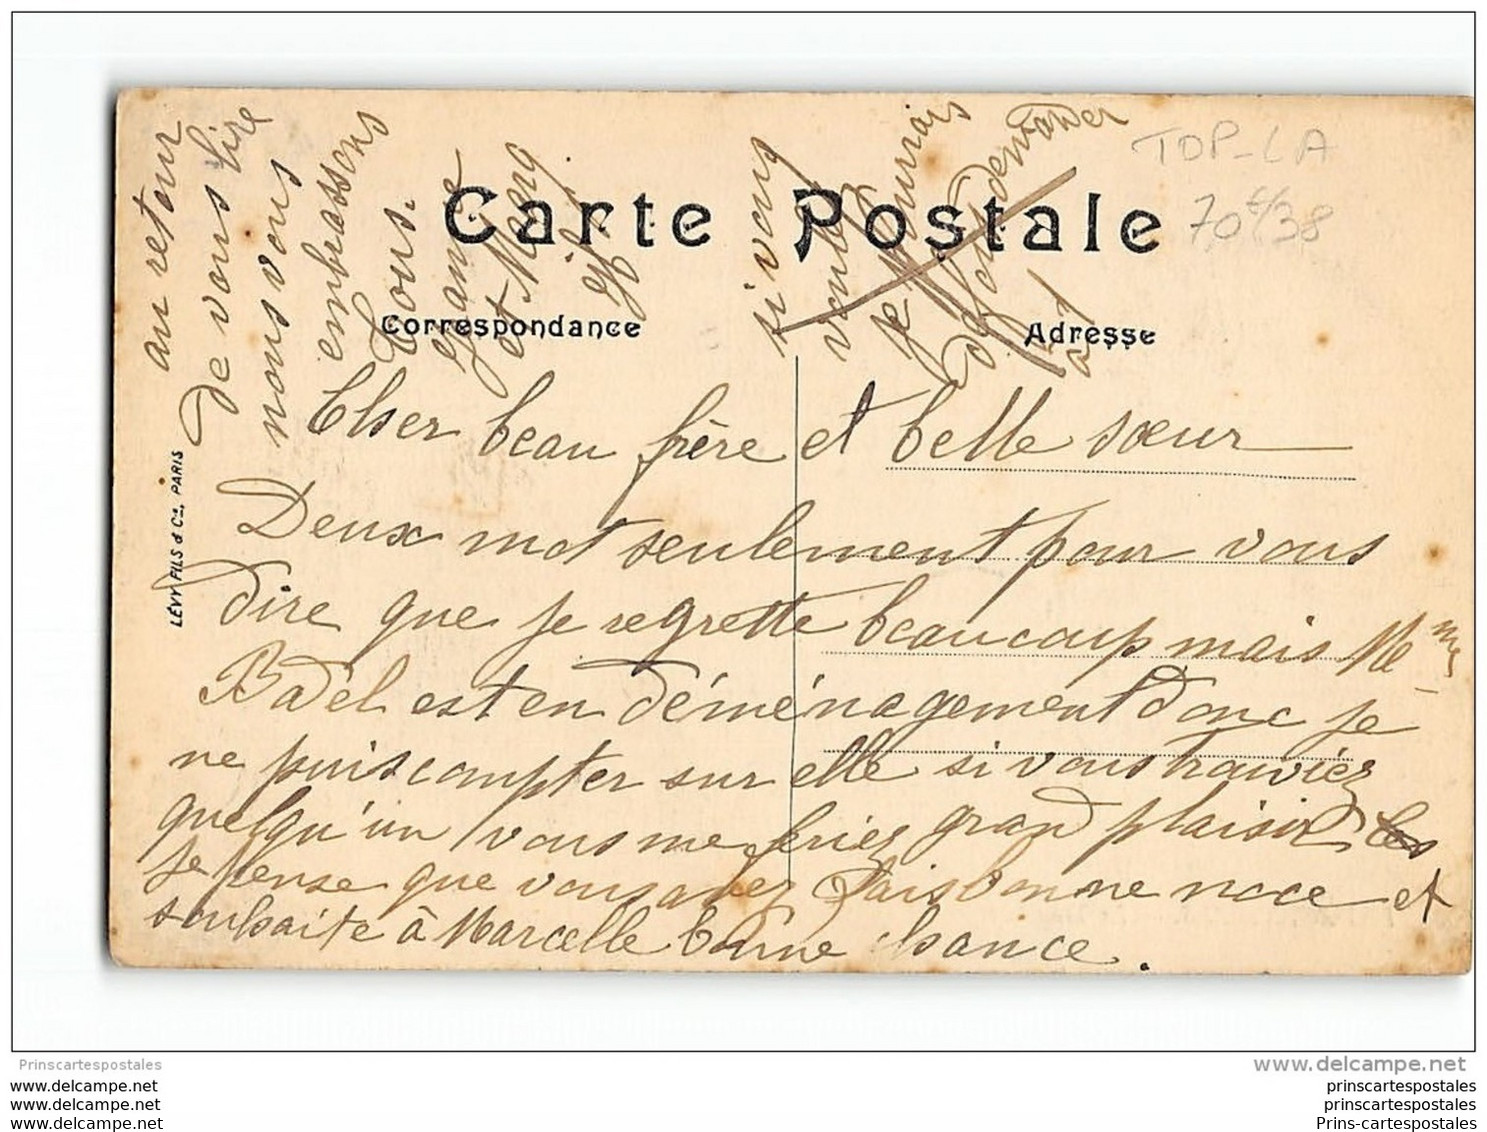 Carte Postale
Correspondance
Adresse
TOP-LA
LÉVY FILS & Cie, PARIS
Cher beau frère et belle sœur
Deux mot seulement pour vous
dire que je regrette beaucoup mais Mme
Badel est en déménagement donc je
ne puis compter sur elle si vous trouviez
quelqu'un vous me feriez grand plaisir
je pense que vous avez fais bonne noce et
souhaite à Marcelle bonne chance.
au retour
de vous lire
nous vous
embrassons
tous.
Jeanne
et
si vous
voulez
je pourrais
demander
Prinscartespostales
www.delcampe.net
www.delcampe.net
www.delcampe.net
www.delcampe.net
prinscartespostales
prinscartespostales
Prins-cartespostales